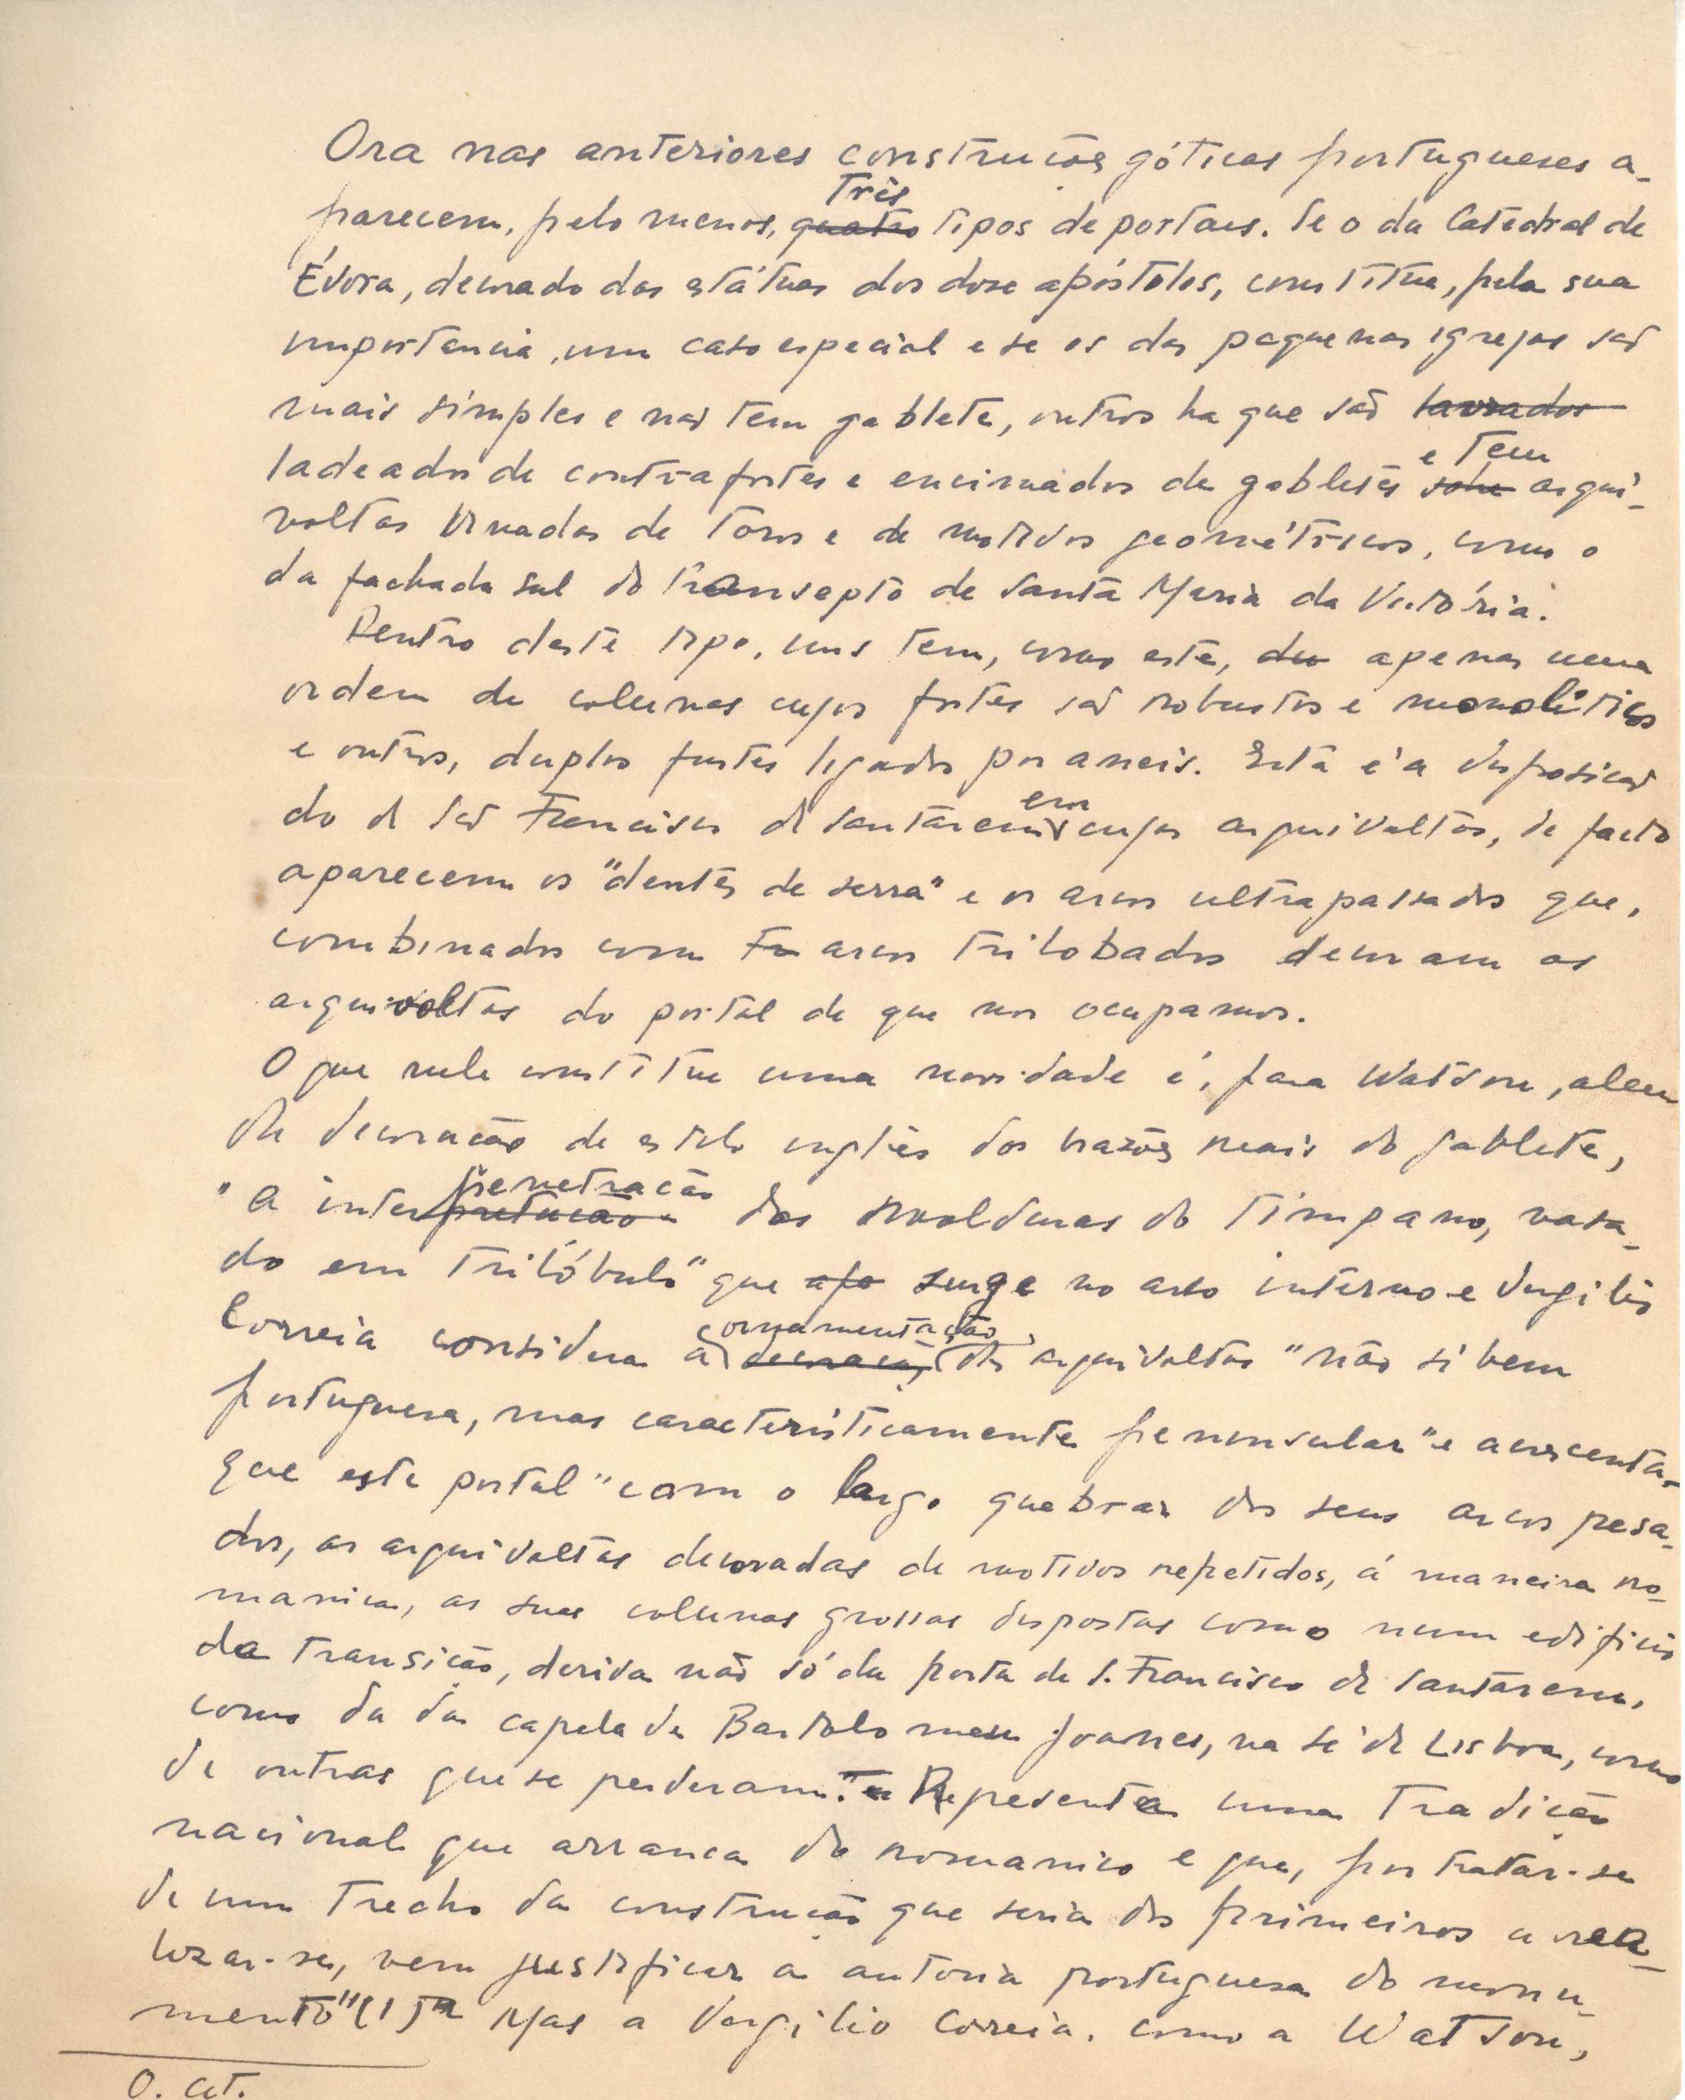 Ora nas anteriores construções góticas portugueses a-
parecem, pelo menos, quatro três tipos de portais. Se o da Catedral de
Évora, decorado das estátuas dos doze apóstolos, constitue, pela sua
importancia, um caso especial e se os das pequenas igrejas são
mais simples e não tem gablete, outros ha que são lavrados
ladeados de contrafortes e encimados de gabletes sobre e tem arqui-
voltas ornadas de toros e de motivos geométricos, como o
da fachada sul do transepto de Santa Maria da Victória.
Dentro deste tipo, uns tem, como este, apenas uma
ordem de colunas cujos fustes são robustos e monolíticos
e outros, duplos fustes ligados por aneis. Esta é a disposição
do de São Francisco de Santarem em cujas arquivoltas, de facto
aparecem os "dentes de serra" e os arcos ultrapassados que,
combinados com arcos trilobados decoram as
arquivoltas do portal de que nos ocupamos.
O que nele constitue uma novidade é, para Watson, alem
da decoração de estilo inglês dos brazões reais do gablete,
"a interpretação penetração das molduras do timpano, vasa-
do em trilóbulo" que apa surge no arco interno e Vergilio
Correia considera a decoração ornamentação das arquivoltas "não só bem
portuguesa, mas caracteristicamente peninsular" e acrescenta
que este portal "com o largo quebrar dos seus arcos pesa-
dos, as arquivoltas decoradas de motivos repetidos, á maneira ro-
manica, as suas colunas grossas dispostas como num edificio
da transição, deriva não só da porta de S. Francisco de Santarem,
como da da capela de Bartolomeu Joanes, na sé de Lisboa, como
de outras que se perderam. Representa uma tradição
nacional que arranca do romanico e que, por tratar-se
de um trecho da construção que seria dos primeiros a rea-
lizar-se, vem justificar a autoria portuguesa do monu-
mento" (1) Mas a Vergilio Correia, como a Watson,
O. cit.